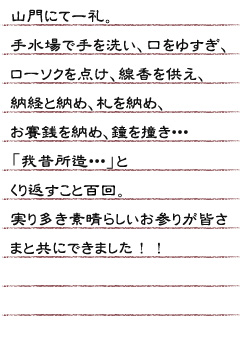 山門にて一礼。
手水場で手を洗い、口をゆすぎ、
ローソクを点け、線香を供え、
納経と納め、札を納め、
お賽銭を納め、鐘を撞き・・・
「我昔所造・・・」と
くり返すこと百回。
実り多き素晴らしいお参りが皆さ
まと共にできました！！